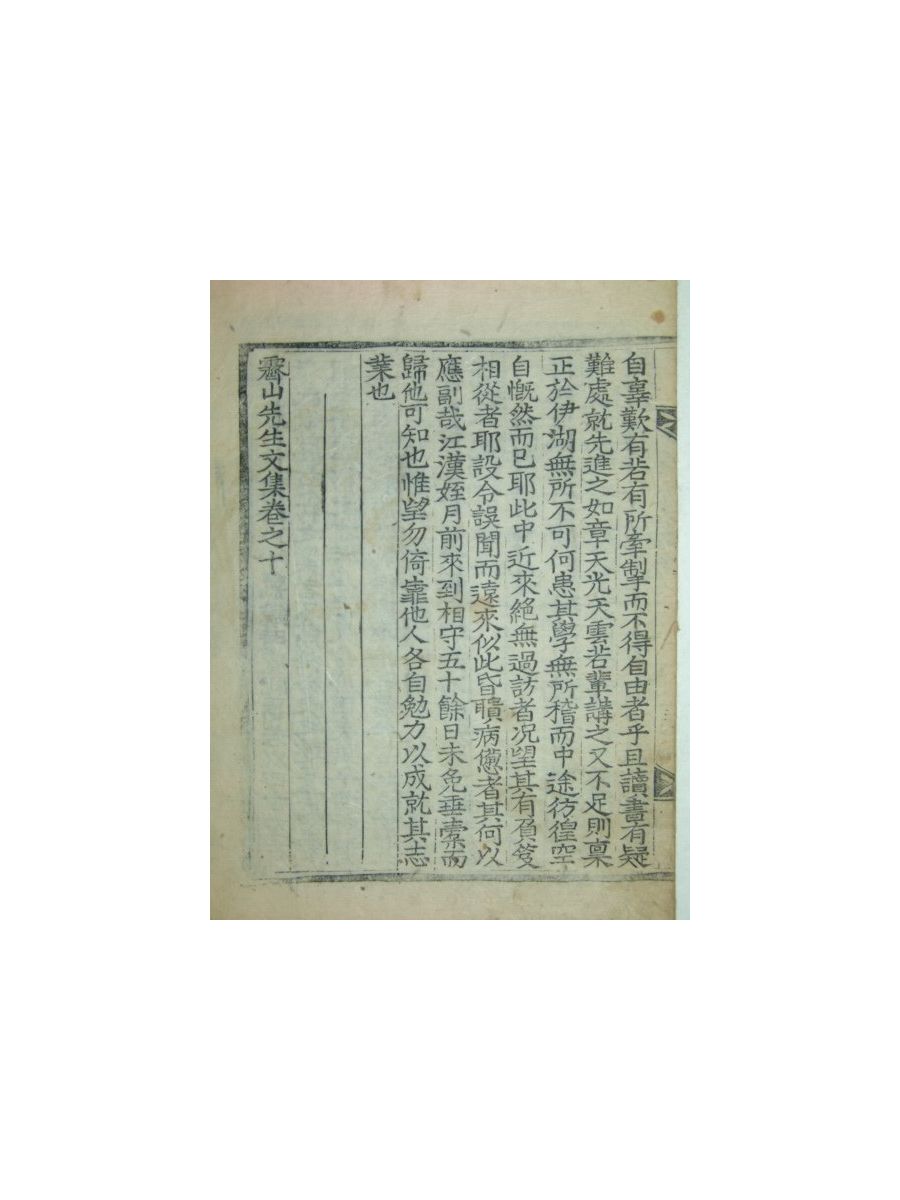 自辜歎有若有所牽掣而不得自由者乎且讀書有疑
難處就先進之如章天光天雲若輩講之又不足則稟
正於伊湖無所不可何患其學無所稽而中途彷徨空
自慨然而已耶此中近來絕無過訪者况望其有負笈
相從者耶設令誤聞而遠來似此昏聵病憊者其何以
應副哉江漢姪月前來到相守五十餘日未免垂橐而
歸他可知也惟望勿倚靠他人各自勉力以成就其志
業也
霽山先生文集卷之十